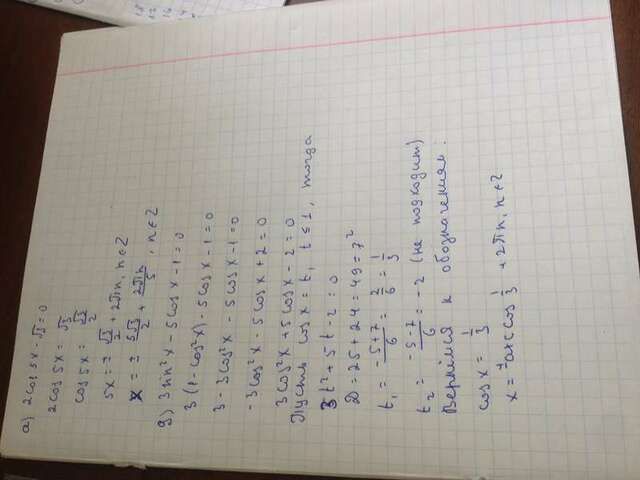 а) 2cos 5x - √3 = 0
2cos 5x = √3
cos 5x = √3/2
5x = ± √3/2 + 2πn, n∈Z
x = ± 5√3/2 + 2πn/5, n∈Z
g) 3sin²x - 5cosx - 1 = 0
3(1-cos²x) - 5cosx - 1 = 0
3 - 3cos²x - 5cosx - 1 = 0
-3cos²x - 5cosx + 2 = 0
3cos²x + 5cosx - 2 = 0
Пусть cosx = t, t ≤ 1, тогда
3t² + 5t - 2 = 0
D = 25 + 24 = 49 = 7²
t₁ = -5+7/6 = 2/6 = 1/3
t₂ = -5-7/6 = -2 (не подходит)
Вернёмся к обозначениям:
cosx = 1/3
x = ± arccos 1/3 + 2πn, n∈Z